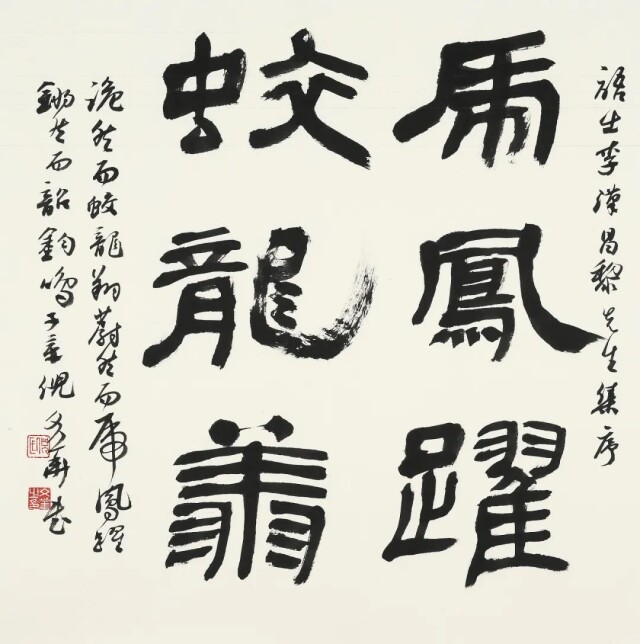 語出李漢昌黎先生集序
虎鳳躍
蛟龍翔
詭然而蛟龍翔蔚然而虎鳳躍
鏘然而韶鈞鳴倪文東書